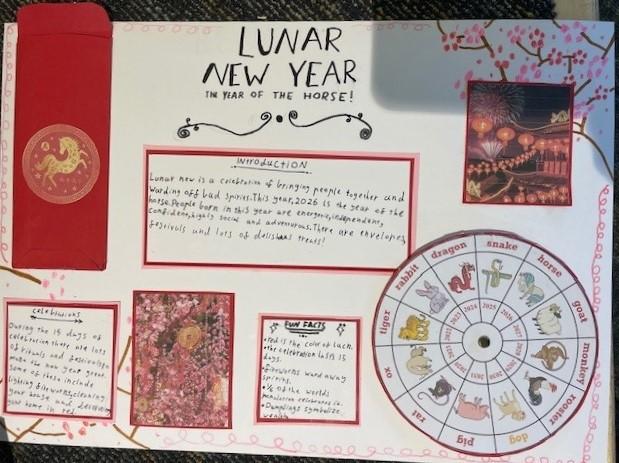 LUNAR
NEW YEAR
THE YEAR OF THE HORSE!
Introduction
Lunar new is a celebration of bringing people together and
warding off bad spirits. This year, 2026 is the year of the
horse. People born in this year are energetic, independent,
confidence, highly social and adventurous. There are envelopes,
festivals and lots of treats!
celebrations
During the 15 days of
celebration there are lots
of rituals and festivities
make the new year great.
some of this include
lighting fireworks, cleaning
your house and decorating
your home in red
FUN FACTS
• red is the color of luck.
• the celebration lasts 15
days.
• fireworks ward away
spirits.
• of the worlds
celebrates it.
• Dumplings symbolize
wealth
snake
horse
goat
monkey
rooster
dog
pig
rat
ox
tiger
rabbit
dragon
2025
2026
2027
2024
2023